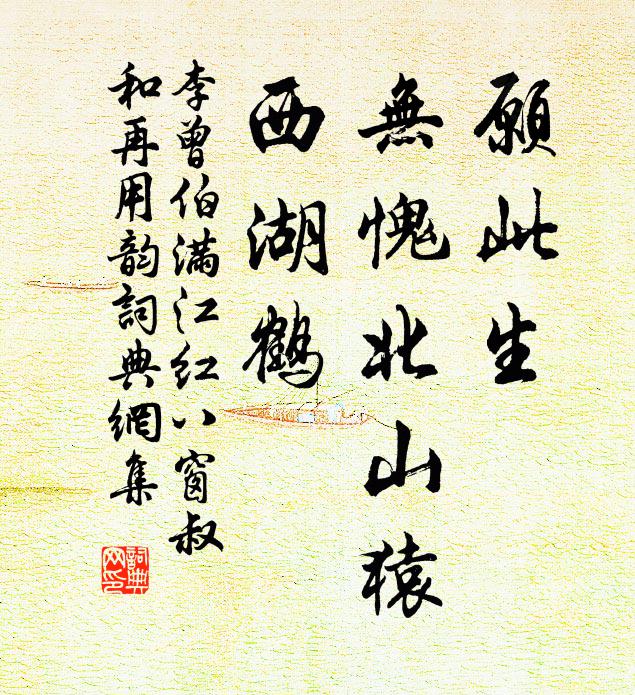 願此生
無愧北山猿
西湖鶴
李曾伯满江红八窗叔
和再用韵詞典網集
詞典
网印